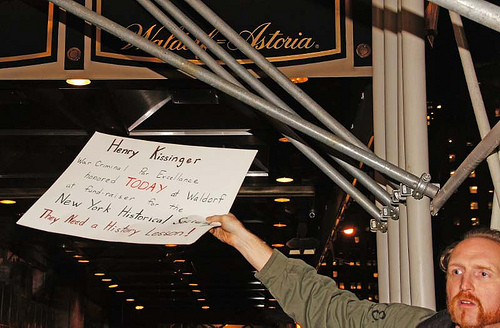 Waldorf-Astoria®
Henry Kissinger
War Criminal Par Excellance
honored TODAY at Waldorf
at fund-raiser for the
New York Historical Society
They Need a History Lesson!